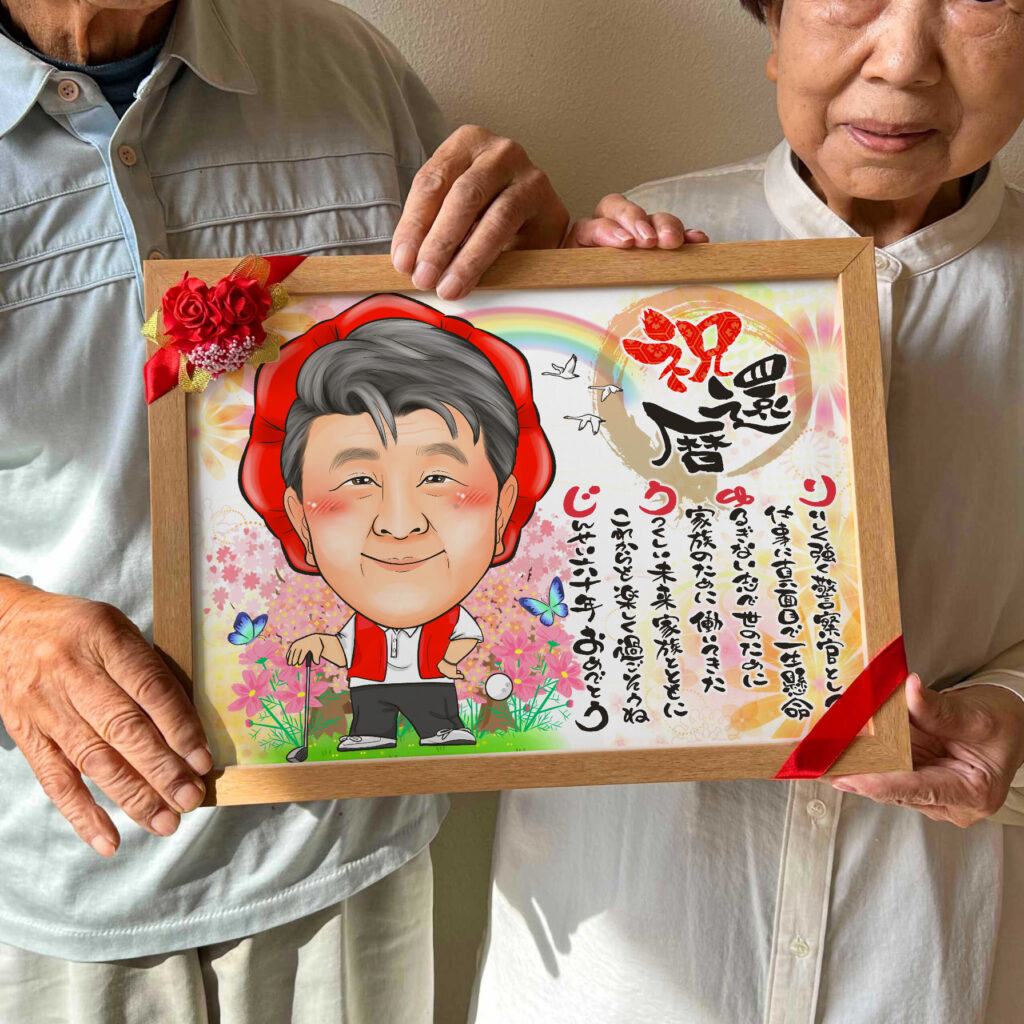 祝
還暦
りりしく強く警察官として
仕事に真面目で一生懸命
ゆるぎない志で世のために
家族のために働いてきた
うつくしい未来家族とともに
これからも楽しく過ごそうね
じんせい六十年おめでとう